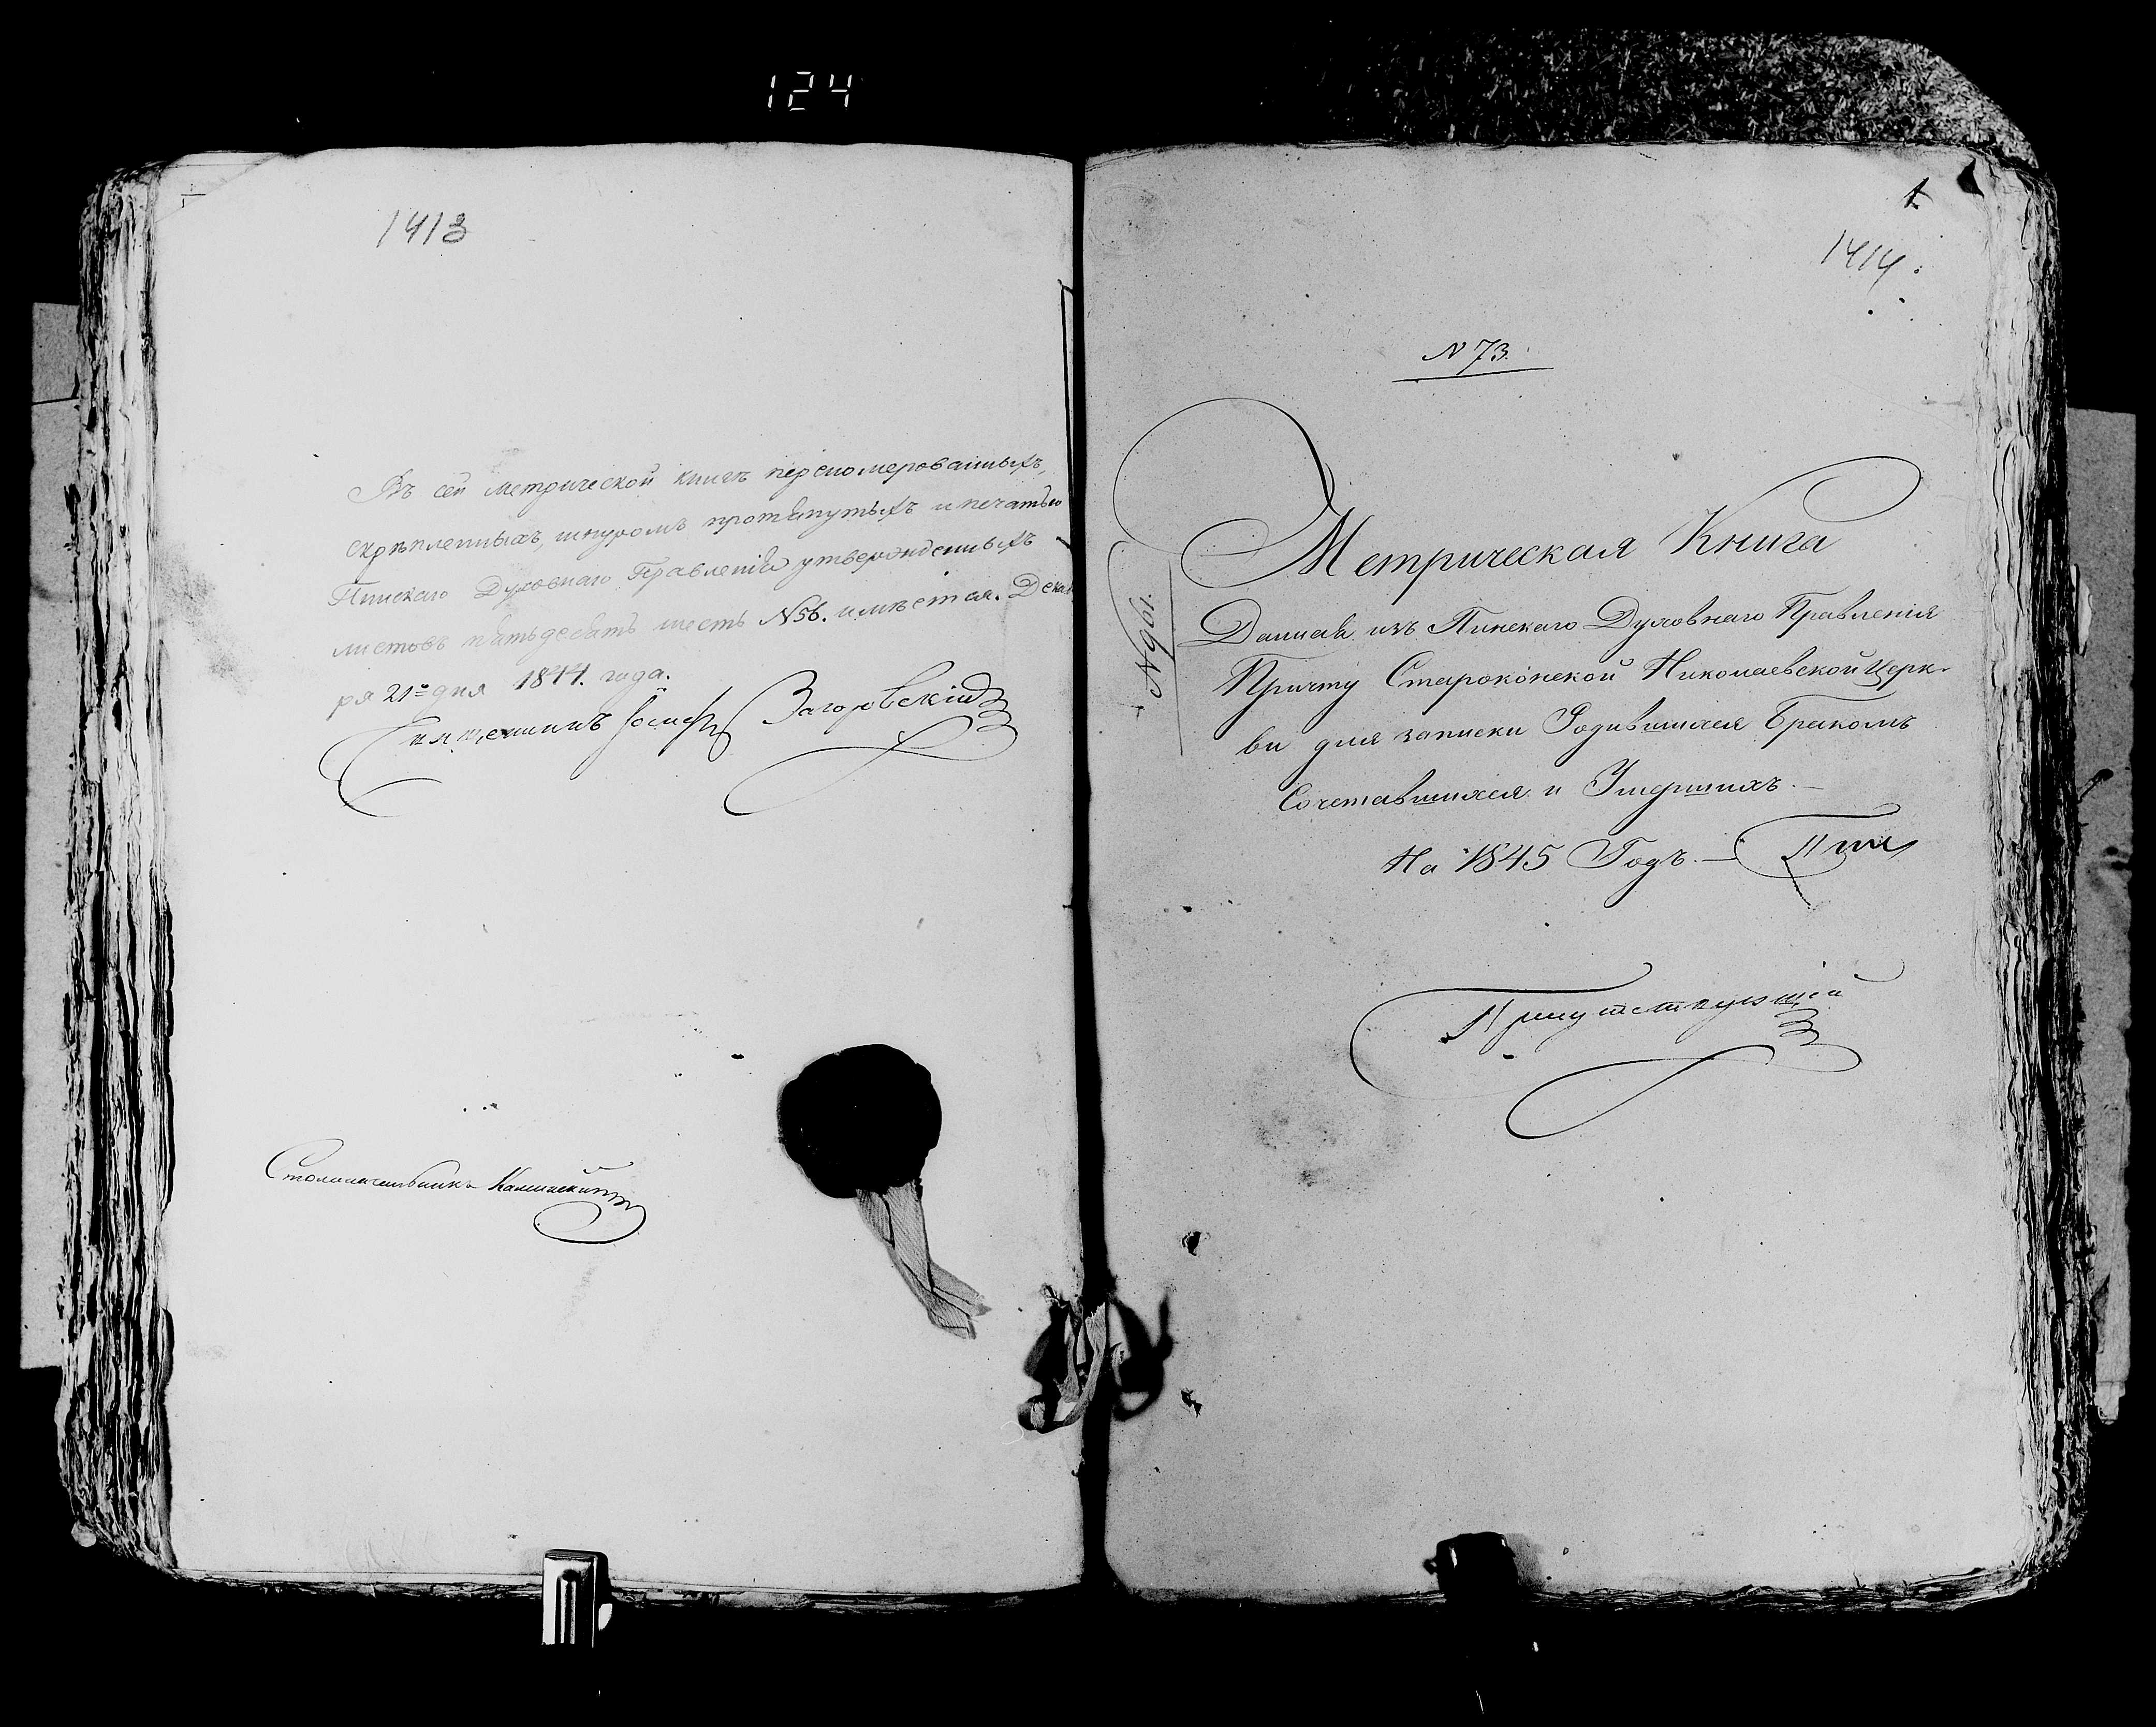 124
1413
Въ сей метрической книгѣ перономерованныхъ,
скрѣпленныхъ, шнуромъ протянутыхъ и печатью
Пинскаго Духовнаго Правленія утвержденныхъ
листовъ пятьдесятъ шесть N56. имѣется. Декаб
ря 21го дня 1844. года.
Священникъ Іосифъ Загоровскій
Столоначальникъ Каминскій
1
1414.
N 73.
Метрическая Книга
N961.
Данная изъ Пинскаго Духовнаго Правленія
Причту Староконской Николаевской Церк-
ви для записки Родившихся Бракомъ
Сочетавшихся и Умершихъ.—
На 1845 Годъ.—
Присутствующій